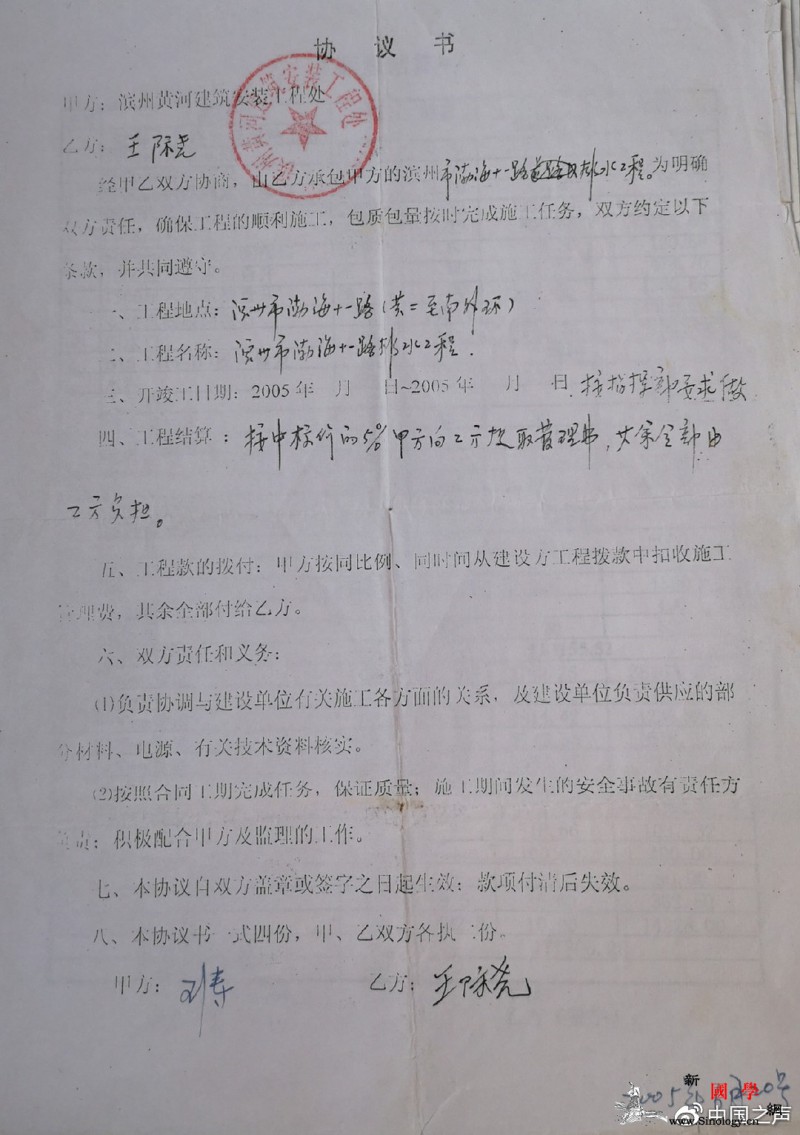 协 议 书
甲方：滨州黄河建筑安装工程处
乙方：王际尧
经甲乙双方协商，由乙方承包甲方的滨州市渤海十一路道路及排水工程。为明确
双方责任，确保工程的顺利施工，包质包量按时完成施工任务，双方约定以下
条款，并共同遵守。
一、工程地点：滨州市渤海十一路（黄二至南外环）
二、工程名称：滨州市渤海十一路排水工程.
三、开竣工日期：2005年 月 日~2005年 月 日.按指挥部要求做
四、工程结算：按中标价的5%甲方向乙方提取管理费，其余全部由
乙方负担。
五、工程款的拨付：甲方按同比例、同时间从建设方工程拨款中扣收施工
管理费，其余全部付给乙方。
六、双方责任和义务：
(1)负责协调与建设单位有关施工各方面的关系，及建设单位负责供应的部
分材料、电源、有关技术资料核实。
(2)按照合同工期完成任务，保证质量；施工期间发生的安全事故有责任方
负责；积极配合甲方及监理的工作。
七、本协议自双方盖章或签字之日起生效；款项付清后失效。
八、本协议书一式四份，甲、乙双方各执二份。
甲方： 乙方：王际尧
2005年 月20号
新國學網
@中国之声
www.Sinology.cn